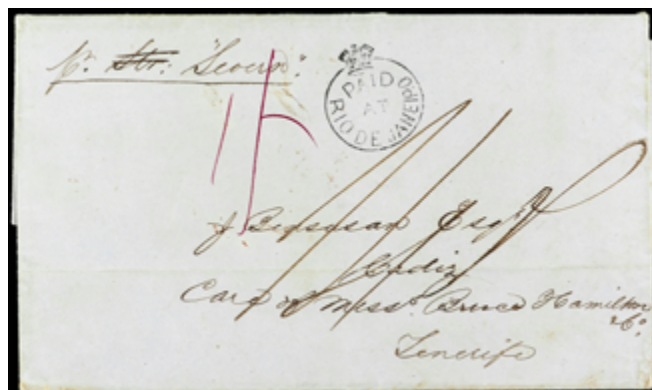 pr. Str: "Severn".
PAID
AT
RIO DE JANEIRO
1/-
J Esqr
Cadiz
Care of Messrs. Bruce Hamilton
& Co.
Tenerife